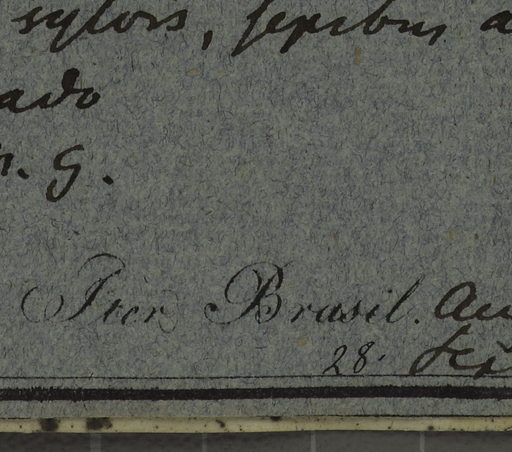 sylvis, sepibus a
ado
n. G.
Iter Brasil. Au
28.